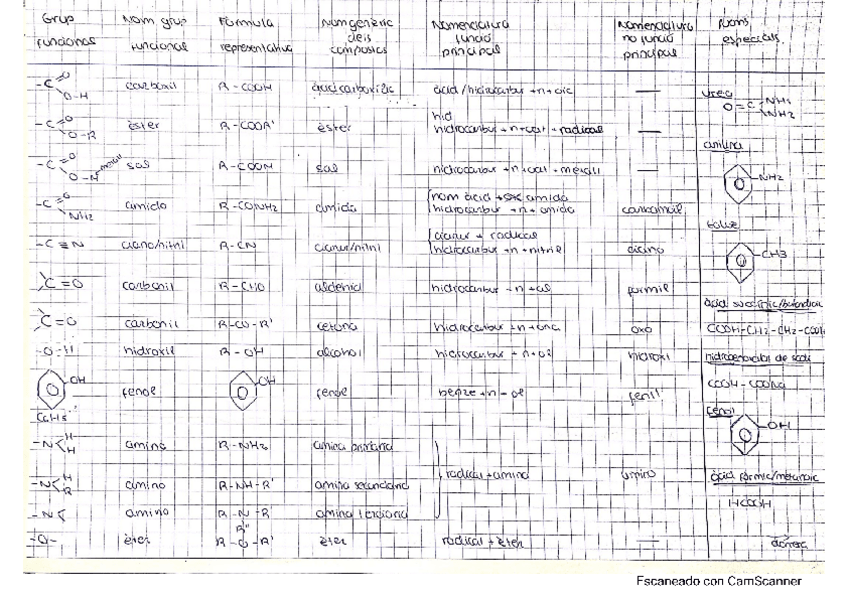 Grup funcional
Nom grup funcional
Fórmula representativa
Nom genèric dels compostos
Nomenclatura funció principal
Nomenclatura no funció principal
Noms especials
-C=O O-H carboxil R-COOH àcid carboxílic àcid/hidrocarbur+n+oic —
-C=O O-R èster R-COOR' èster hid
hidrocarbur+n+oat+radical —
-C=O O-M metall sal R-COOM sal hidrocarbur+n+oat+metall —
-C=O NH2 amida R-CONH2 amida nom àcid + amida
hidrocarbur+n+amida carbamoil
-C≡N ciano/nitril R-CN cianur/nitril cianur + radical
hidrocarbur+n+nitril ciano
C=O carbonil R-CHO aldehid hidrocarbur+n+al formil
C=O carbonil R-CO-R' cetona hidrocarbur+n+ona oxo
-O-H hidroxil R-OH alcohol hidrocarbur+n+ol hidroxi
OH fenol OH fenol benze+n-ol fenil
C6H5
-N H H amino R-NH2 amina primària
-N H R amino R-NH-R' amina secundària radical+amina amino
-N amino R-N-R' amina terciària
R''
-O- èter R-O-R' èter radical+èter —
urea
O=C NH2
NH2
anilina
NH2
toluè
CH3
àcid succínic/butandioic
COOH-CH2-CH2-COOH
hidrogenoxalat de sodi
COOH-COONa
fenol
OH
àcid fòrmic/metanoic
HCOOH
Escaneado con CamScanner